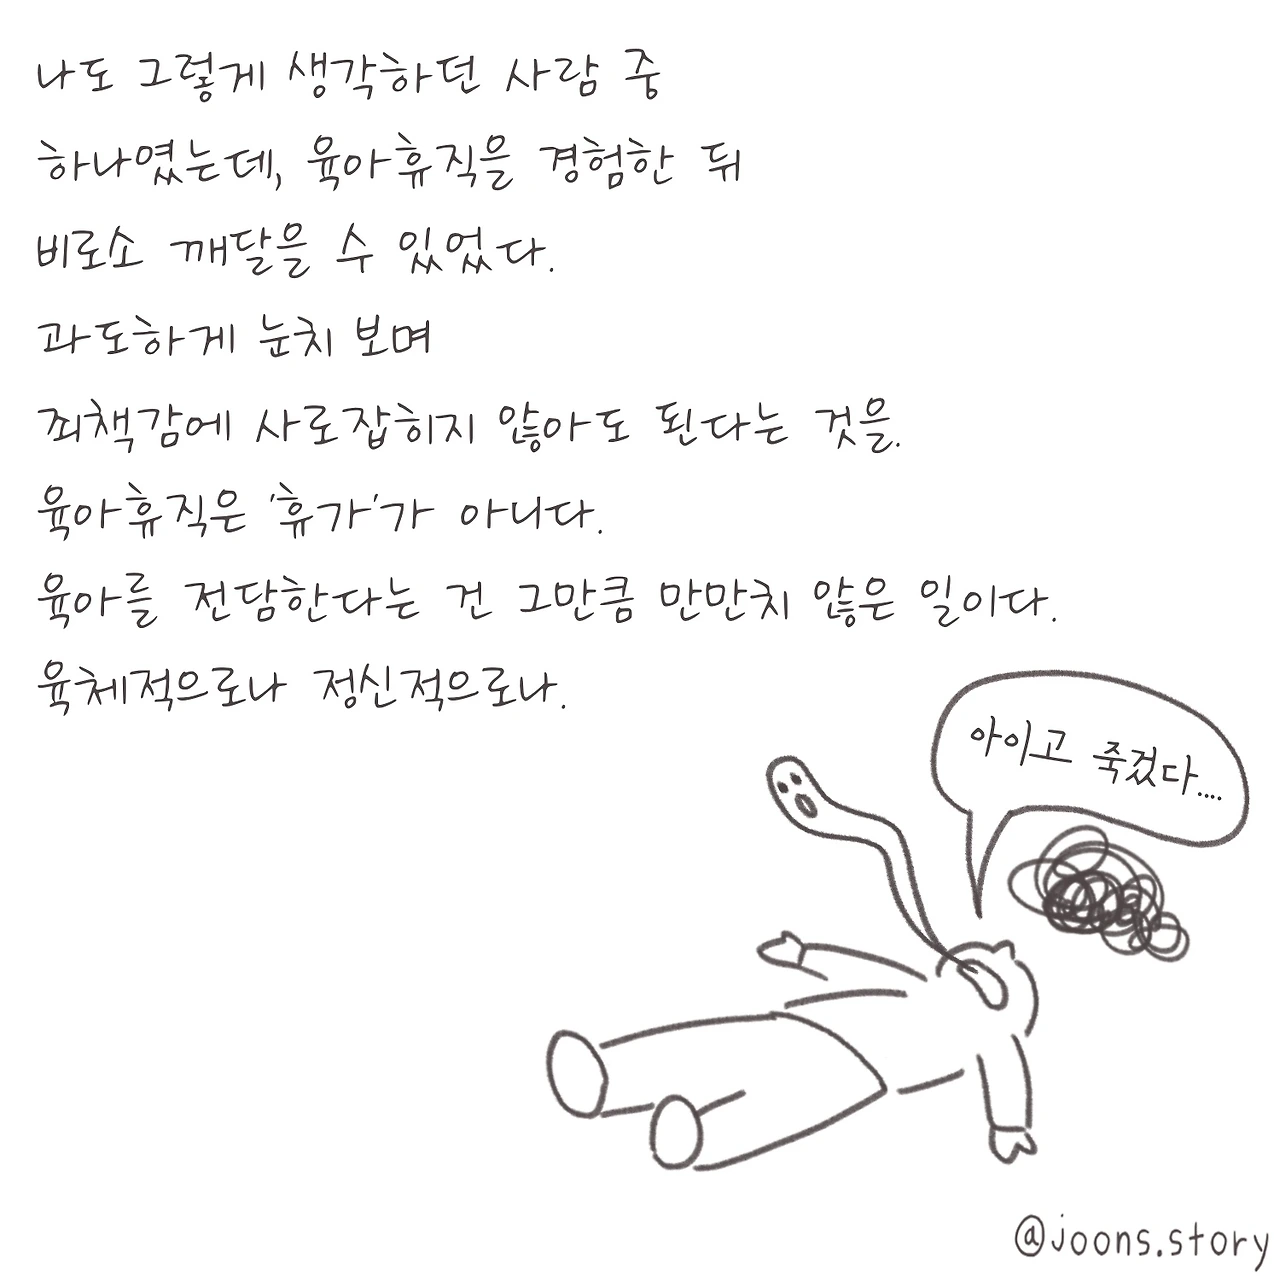 나도 그렇게 생각하던 사람 중
하나였는데, 육아휴직을 경험한 뒤
비로소 깨달을 수 있었다.
과도하게 눈치 보며
죄책감에 사로잡히지 않아도 된다는 것을.
육아휴직은 '휴가'가 아니다.
육아를 전담한다는 건 그만큼 만만치 않은 일이다.
육체적으로나 정신적으로나.
아이고 죽겠다....
@joons.story